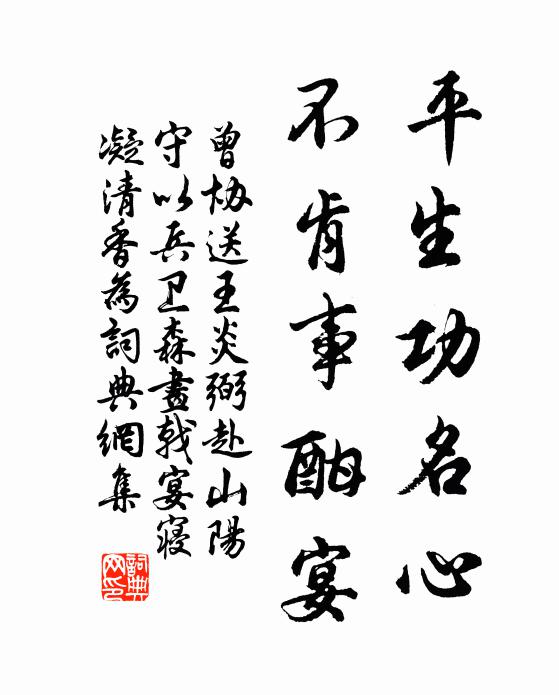 平生功名心
不肯事酣宴
曾协送王炎弼赴山陽
守以兵卫森畫戟宴寝
凝清香為詞典網集
詞典
网印